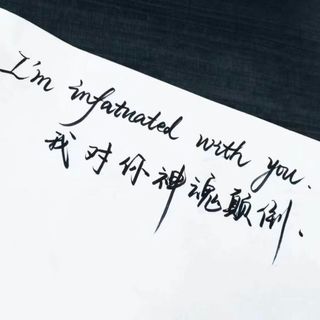 I'm infatuated with you.
我对你神魂颠倒.